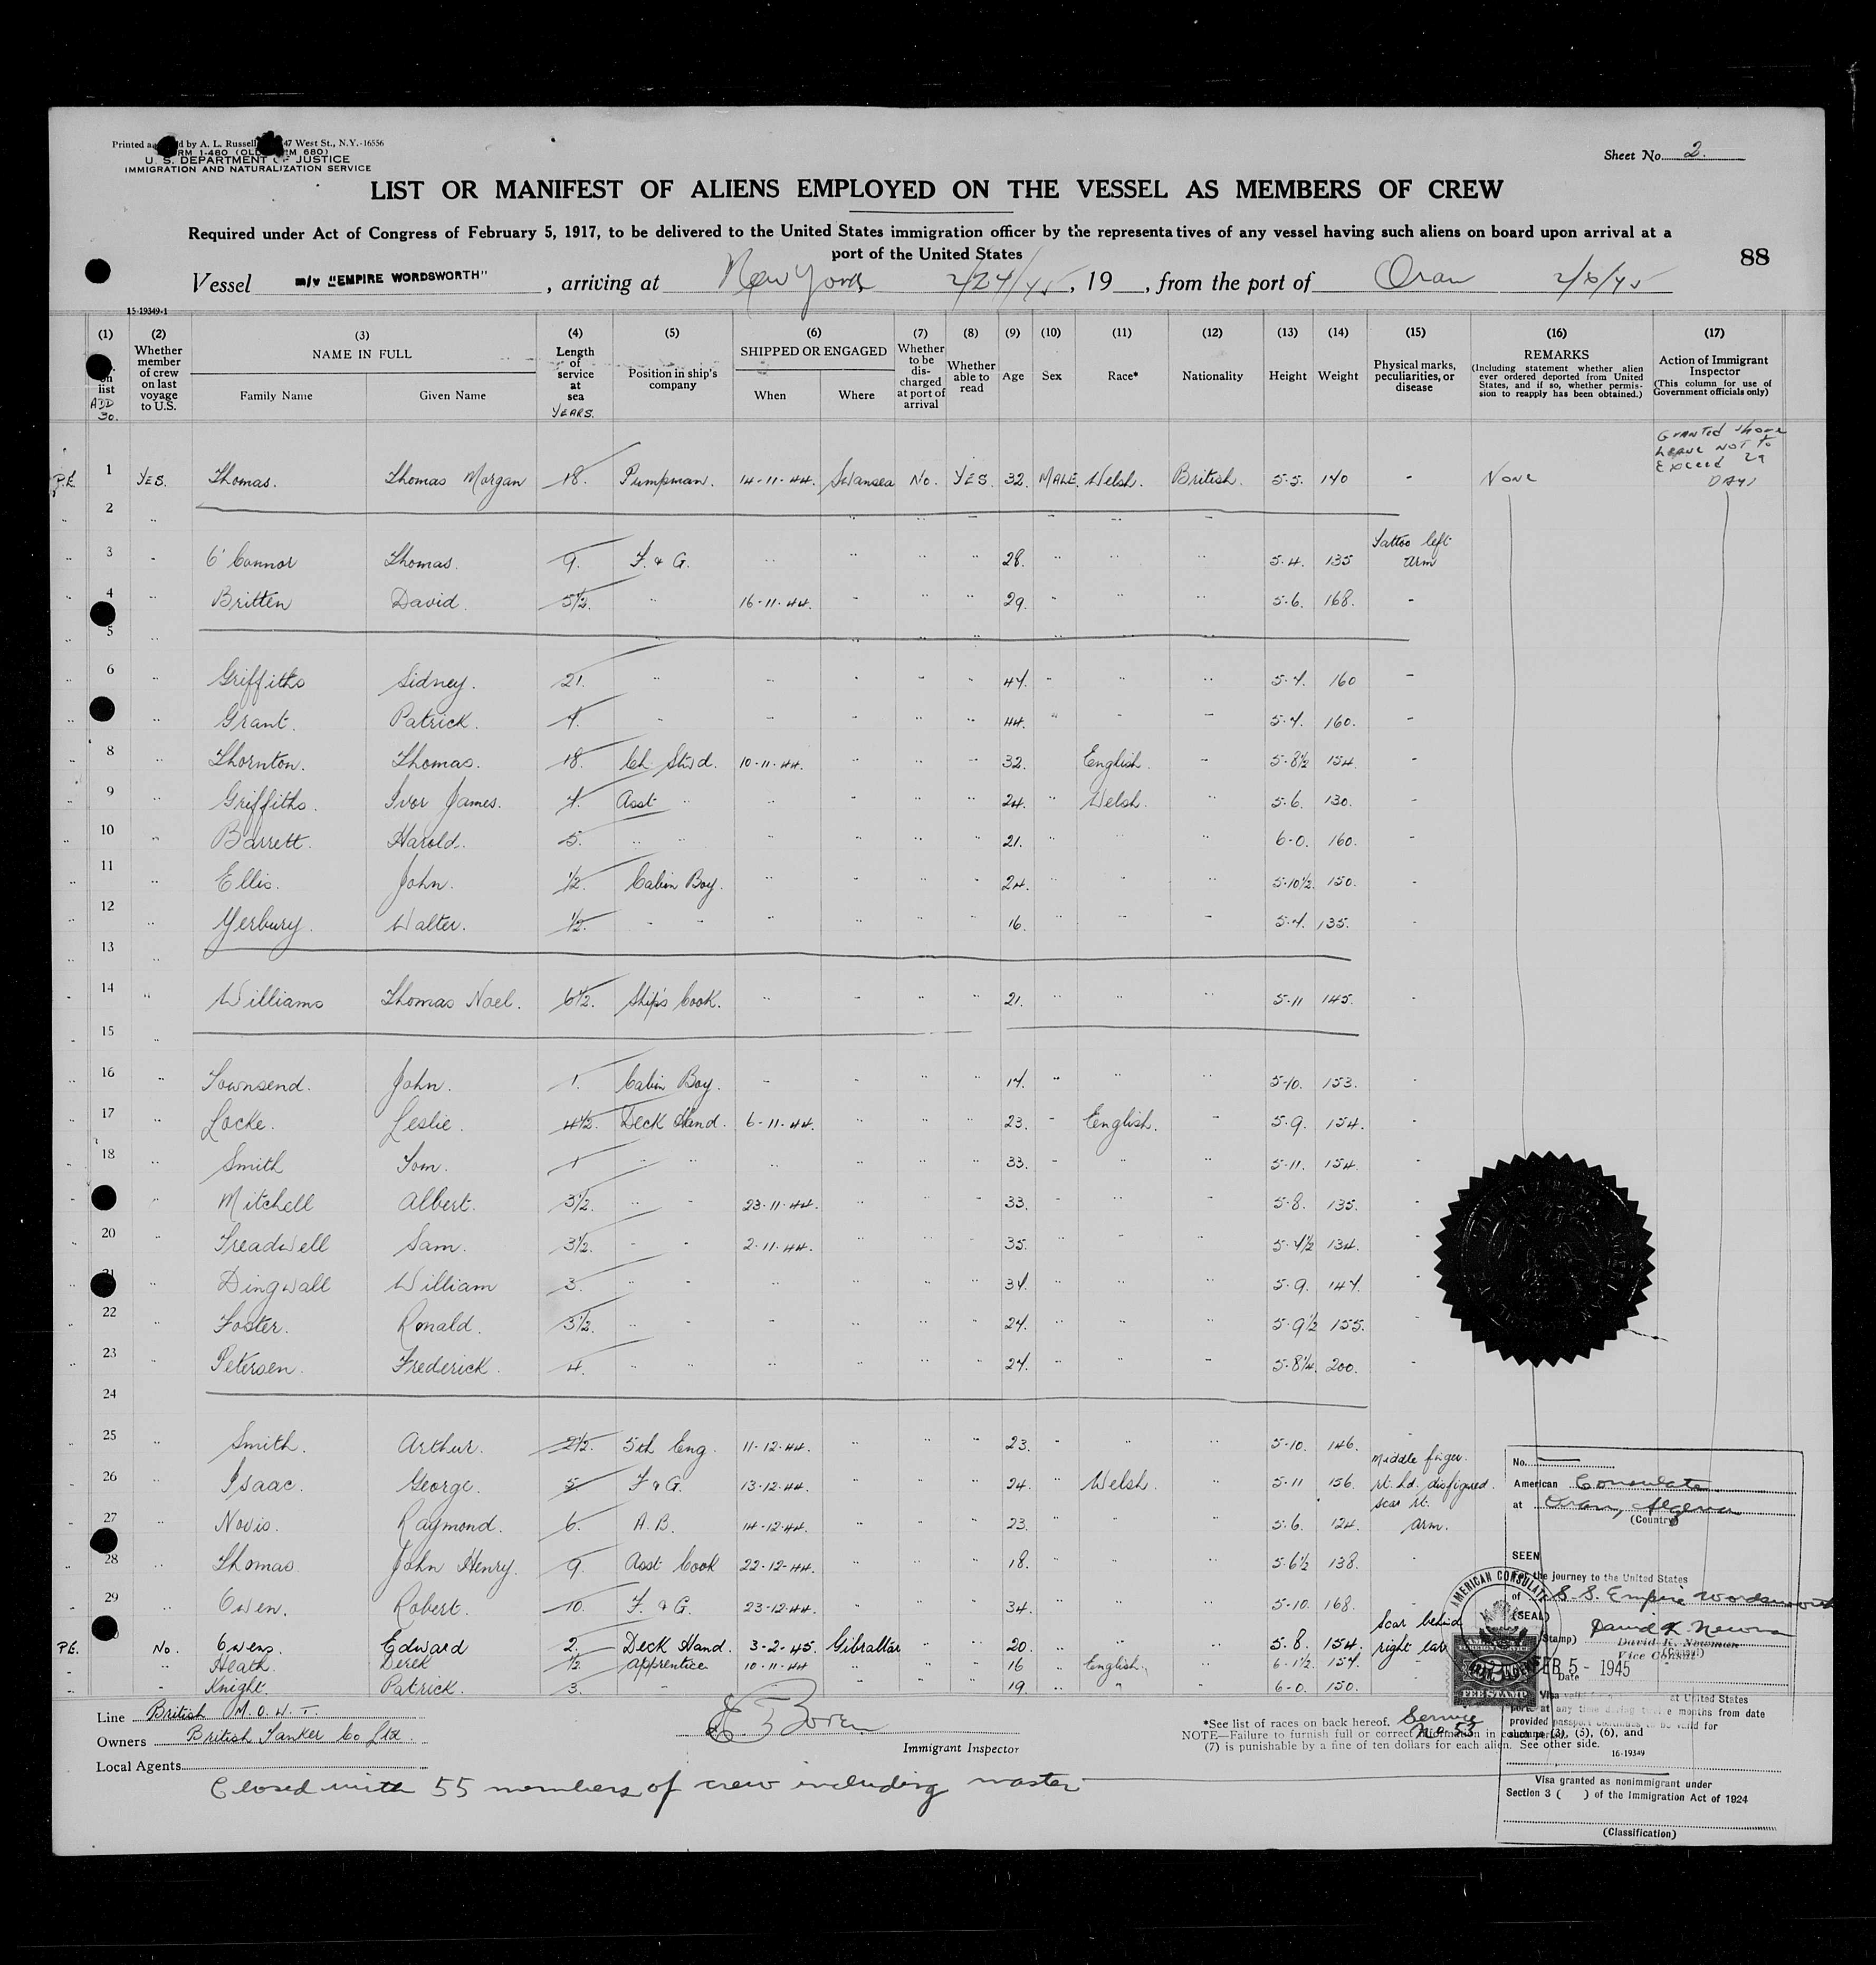 Printed a d by A. L. Russell 47 West St., N.Y.-16556
RM 1-480 (OL M 680)
U. S. DEPARTMENT OF JUSTICE
IMMIGRATION AND NATURALIZATION SERVICE
Sheet No. 2.
LIST OR MANIFEST OF ALIENS EMPLOYED ON THE VESSEL AS MEMBERS OF CREW
Required under Act of Congress of February 5, 1917, to be delivered to the United States immigration officer by the representatives of any vessel having such aliens on board upon arrival at a
port of the United States
88
Vessel m/v "EMPIRE WORDSWORTH", arriving at New York 2/24/45, 19 , from the port of Oran 2/6/45
15-19349-1
(1) (2) (3) (4) (5) (6) (7) (8) (9) (10) (11) (12) (13) (14) (15) (16) (17)
on list ADD 30.
Whether member of crew on last voyage to U.S.
NAME IN FULL
Family Name Given Name
Length of service at sea YEARS.
Position in ship's company
SHIPPED OR ENGAGED
When Where
Whether to be discharged at port of arrival
Whether able to read
Age Sex Race* Nationality Height Weight
Physical marks, peculiarities, or disease
REMARKS
(Including statement whether alien ever ordered deported from United States, and if so, whether permission to reapply has been obtained.)
Action of Immigrant Inspector
(This column for use of Government officials only)
GRANTED shore
LEAVE NOT to
Exceed 29
DAYS
P.E. 1 YES. Thomas. Thomas Morgan 18. Pumpman. 14-11-44. Swansea No. YES. 32. MALE. Welsh. British. 5-5. 140 - NONE
2 ..
3 - O'Connor Thomas. 9. F. & G. .. .. .. .. 28. .. .. .. 5-4. 135 Tattoo left arm
4 .. Britten David. 5½. .. 16-11-44. .. .. .. 29. .. .. .. 5-6. 168. -
5 ..
6 .. Griffiths Sidney. 21. .. .. .. .. .. 47. .. .. .. 5-7. 160 -
.. Grant. Patrick. 7. .. .. .. .. .. 44. .. .. .. 5-7. 160. -
8 .. Thornton. Thomas. 18. Ch. Stwd. 10-11-44. .. .. .. 32. English. .. 5-8½ 154. -
9 .. Griffiths. Ivor James. 7. Asst. .. .. .. .. .. 24. .. Welsh. .. 5-6. 130. -
10 .. Barrett. Harold. 5. .. .. .. .. .. .. 21. .. .. .. 6-0. 160. -
11 .. Ellis. John. ½. Cabin Boy. .. .. .. .. 24. .. .. .. 5-10½. 150. -
12 .. Yerbury. Walter. ½. .. .. .. .. .. .. 16. .. .. .. 5-7. 135. -
13 ..
14 .. Williams Thomas Noel. 6½. Ship's Cook. .. .. .. .. 21. .. .. .. 5-11 145. -
15 ..
16 .. Townsend. John. 1. Cabin Boy. .. .. .. .. 17. .. .. .. 5-10. 153. -
17 .. Locke. Leslie. 4½. Deck Hand. 6-11-44. .. .. .. 23. - English. .. 5-9. 154. -
18 .. Smith Tom. 1 .. .. .. .. .. .. 33. - .. .. 5-11. 154. -
.. Mitchell Albert. 3½. .. .. 23-11-44. .. .. .. 33. .. .. .. 5-8. 135. -
20 .. Treadwell Sam. 3½. .. .. 2-11-44. .. .. .. 35. .. .. .. 5-7½ 134. -
21 .. Dingwall William 3. .. .. .. .. .. .. 37. .. .. .. 5-9. 147. -
22 .. Foster. Ronald. 3½. .. .. .. .. .. .. 24. .. .. .. 5-9½ 155. -
23 .. Petersen. Frederick. 4. .. .. .. .. .. .. 27. .. .. .. 5-8¼. 200. -
24
25 .. Smith. Arthur. 2½. 5th Eng. 11-12-44. .. .. .. 23. .. .. .. 5-10. 146. -
26 .. Isaac. George. 5 F & G. 13-12-44. .. .. .. 24. .. Welsh. .. 5-11 156. Middle finger. rt. hd. disfigured.
27 .. Novis. Raymond. 6. A.B. 14-12-44. .. .. .. 23. .. .. .. 5-6. 124. scar rt. arm.
28 .. Thomas John Henry. 9. Asst Cook 22-12-44. .. .. .. 18. .. .. .. 5-6½ 138. -
29 .. Owen. Robert. 10. F. & G. 23-12-44. .. .. .. 34. .. .. .. 5-10. 168. -
P.E. No. Owens. Edward 2. Deck Hand. 3-2-45. Gibraltar .. .. 20. .. .. .. 5-8. 154. Scar behind right ear
.. Heath. Derek ½. apprentice 10-11-44 .. .. .. 16 .. English. .. 6-1½. 157.
.. Knight. Patrick. 3. .. .. .. .. .. 19. .. .. .. 6-0. 150.
Line British M.O.W.T.
Owners British Tanker Co Ltd.
Local Agents
Immigrant Inspector
*See list of races on back hereof.
NOTE—Failure to furnish full or correct information in columns (3), (5), (6), and
(7) is punishable by a fine of ten dollars for each alien. See other side.
16-19349
Service
No. 53
Closed with 55 members of crew including master
No.
American Consulate
at Oran, Algeria
(Country)
SEEN
the journey to the United States
of S.S. Empire Wordsworth
(SEAL)
(Stamp)
David K. Newman
Vice Consul
FEB 5 - 1945
Date
AMERICAN CONSULATE
FEE STAMP
Visa at United States
ports at any time during twelve months from date
provided passport continues to be valid for
such period.
Visa granted as nonimmigrant under
Section 3 ( ) of the Immigration Act of 1924
(Classification)